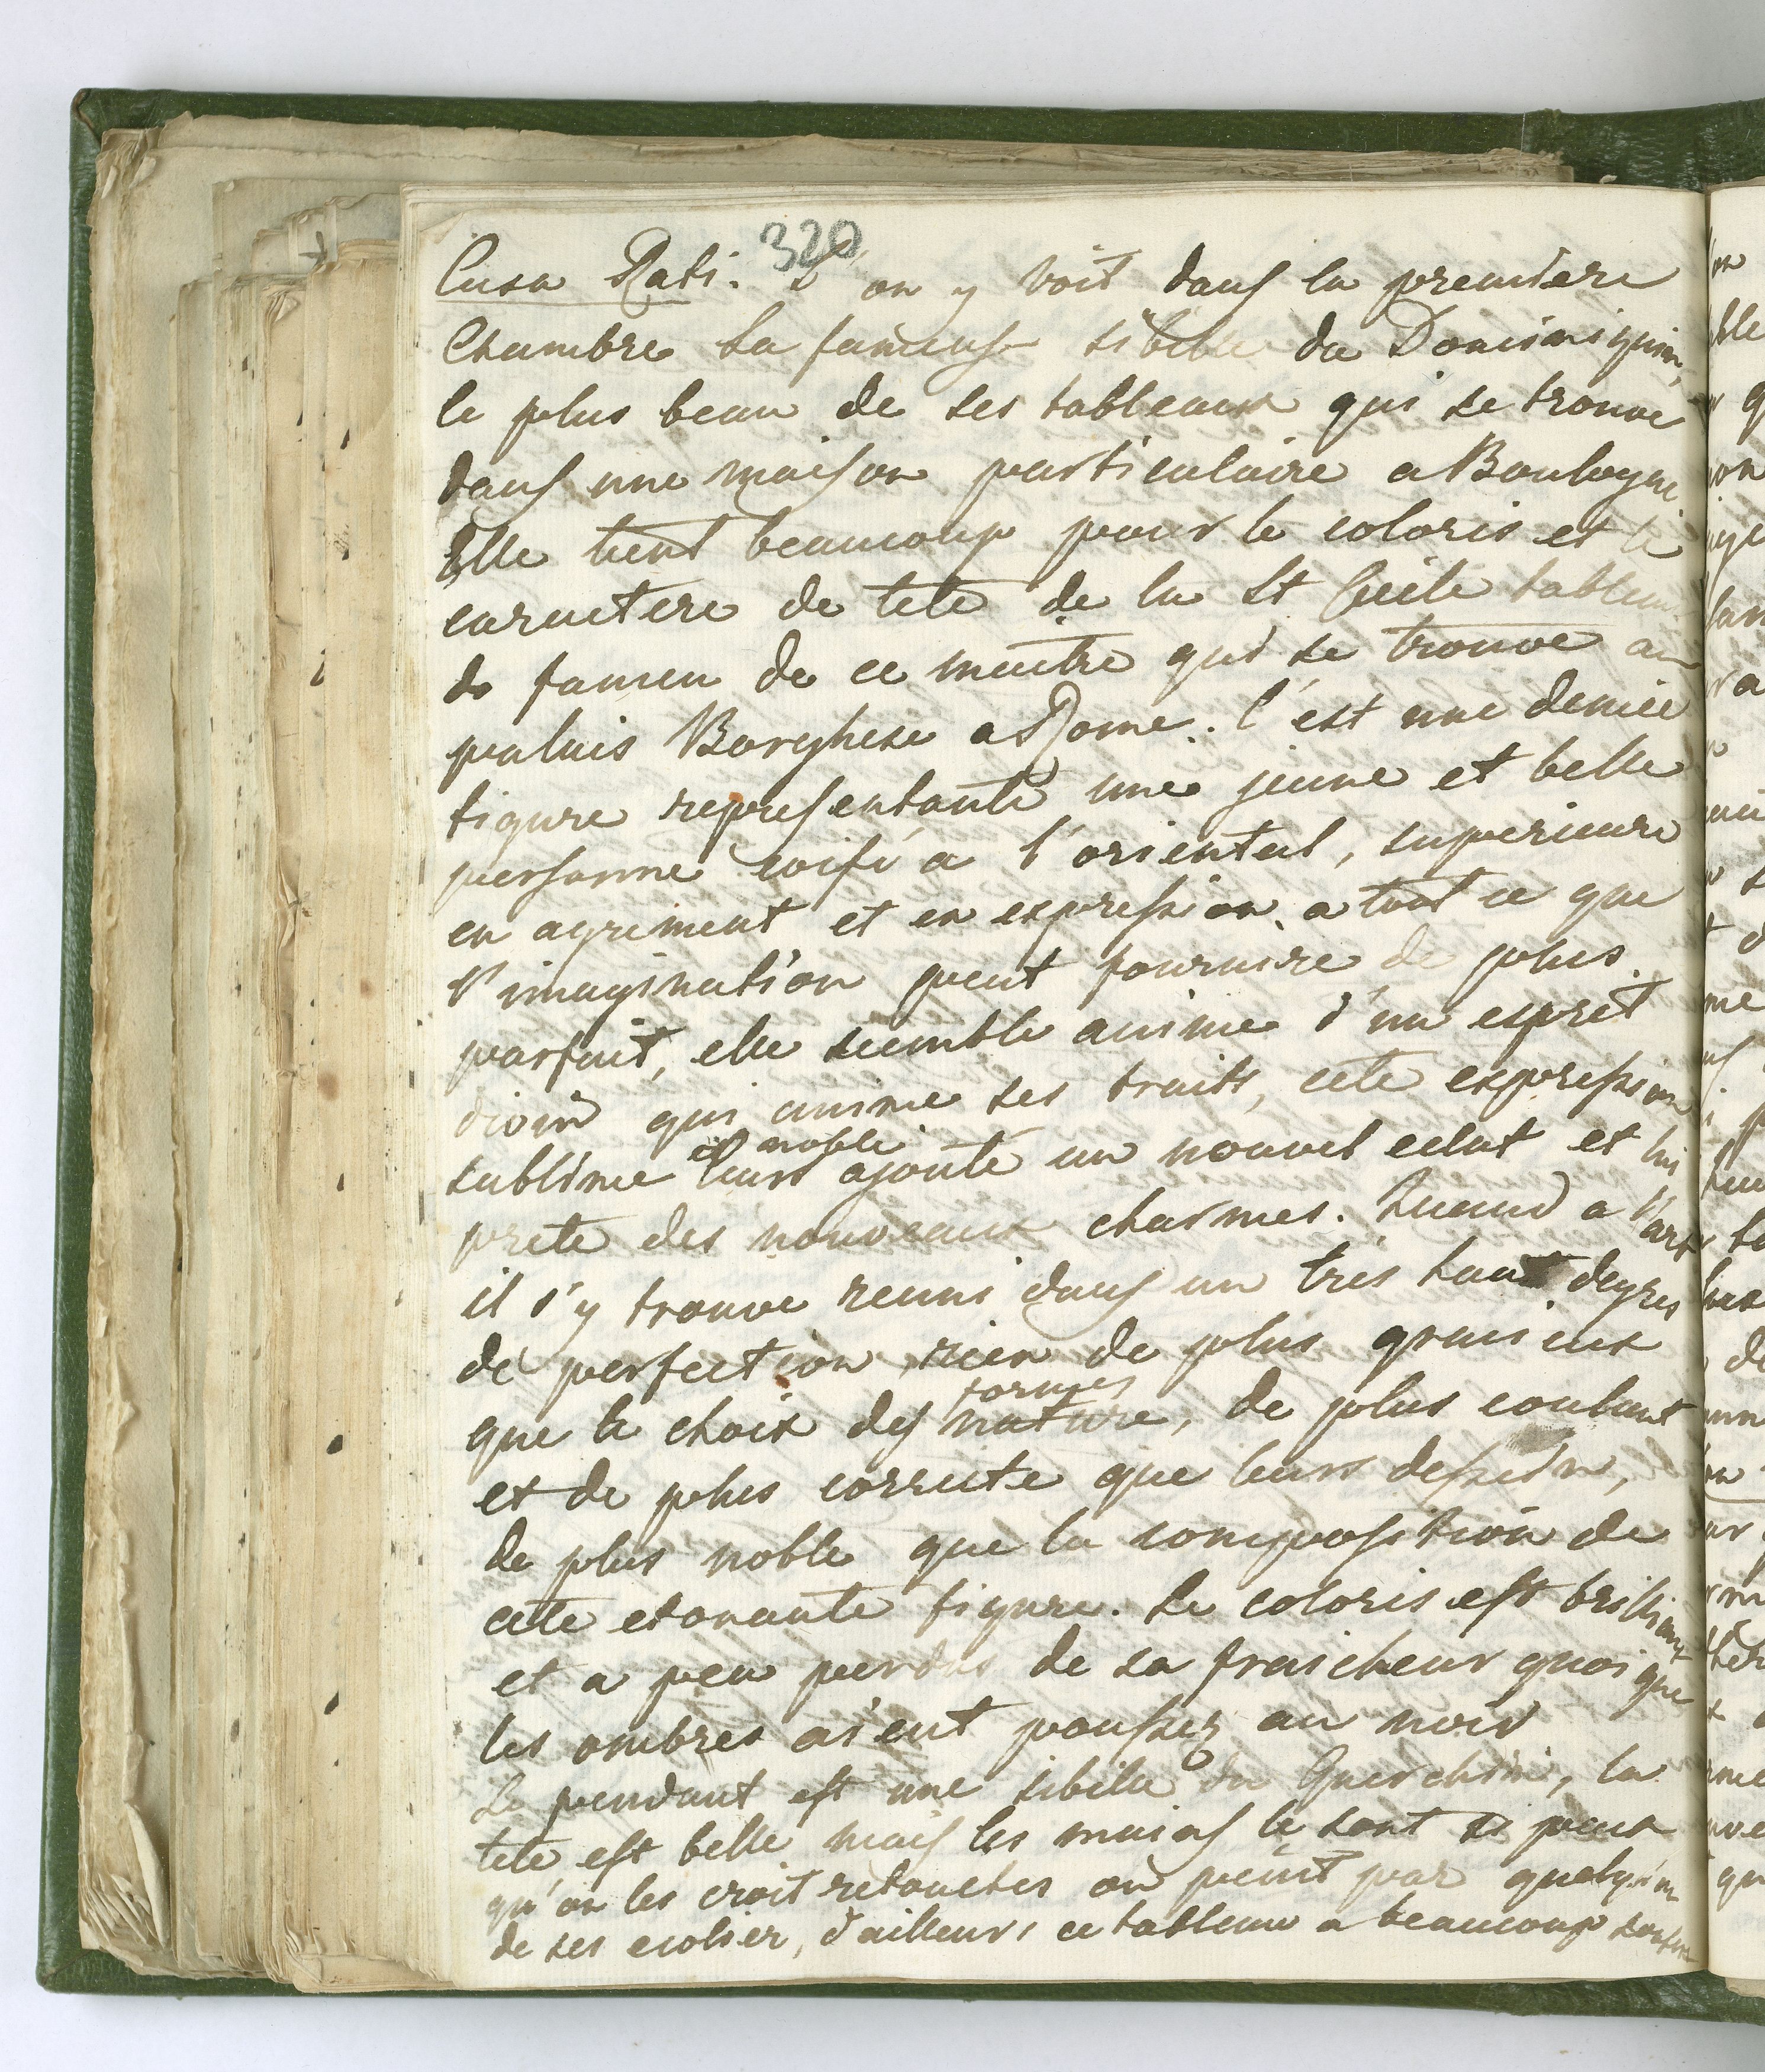 320
Casa Rati. L'on y voit dans la premiere
Chambre la fameuse sibille du Dominiquin,
le plus beau de ses tableaux qui se trouve
dans une maison particulaire a Boulogne.
Elle tient beaucoup pour le coloris et le
caractere de tete de la St Cecile tableau
de fameu de ce maitre qui se trouve au
palais Borghese a Rome. C'est une demiee
figure representante une jeune et belle
personne coifé a l'oriental, superieure
en agrement et en expression a tout ce que
l'imagination peut fournire de plus
parfait, elle seemble anime d'un esprit
divin qui anime ses traits, cete expression
et noble
sublime leurs ajoute un nouvel eclat et lui
prete des nouveaux charmes. Quand a l'art
il s'y trouve reuni dans un tres haut degres
de perfection, rien de plus graisieux
formes
que le choix des nature, de plus coulant
et de plus correcte que leurs dessein,
de plus noble que la composition de
cete etonante figure. Le coloris est brilliant
et a peu perdus de sa fraicheur quoique
les ombres aient pousséz au noir
Le pendant est une sibile du Guerchin, la
tete est belle mais les mains le sont si peux
qu'on les croit retouches ou peint par quelqu'un
de ses ecolier, d'ailleurs ce tableau a beaucoup